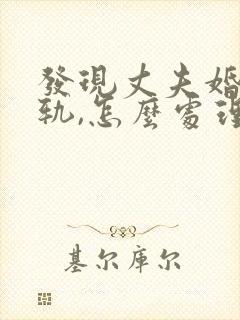 發現丈夫婚
軌,怎麼處理
基尔库尔